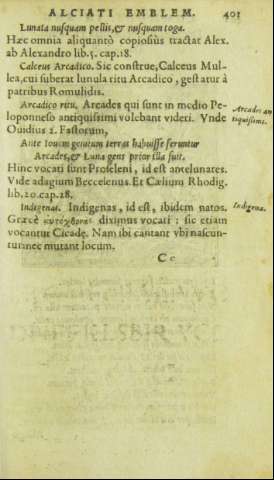 ALCIATI EMBLEM. 401
Lunata nusquam pellis, & nusquam toga.
Hæc omnia aliquantò copiosiùs tractat Alex.
ab Alexandro lib. 5. cap. 18.
Calceus Arcadico. Sic construe, Calceus Mul-
lea, cui suberat lunula ritu Arcadico, gestatur à
patribus Romulidis.
Arcadico ritu. Arcades qui sunt in medio Pe-
loponneso antiquissimi volebant videri. Vnde
Ouidius 2. Fastorum,
Ante Iouem genitum terras habuisse feruntur
Arcades, & Luna gens prior illa fuit.
Hinc vocati sunt Proseleni, id est antelunares.
Vide adagium Beccelenus. Et Cælium Rhodig.
lib. 20. cap. 28.
Indigenas. Indigenas, id est, ibidem natos.
Græcè αὐτόχθονας diximus vocari: sic etiam
vocantur Cicadę. Nam ibi cantant vbi nascun-
tur: nec mutant locum.
Cc
Arcades an
tiquissimi.
Indigena.